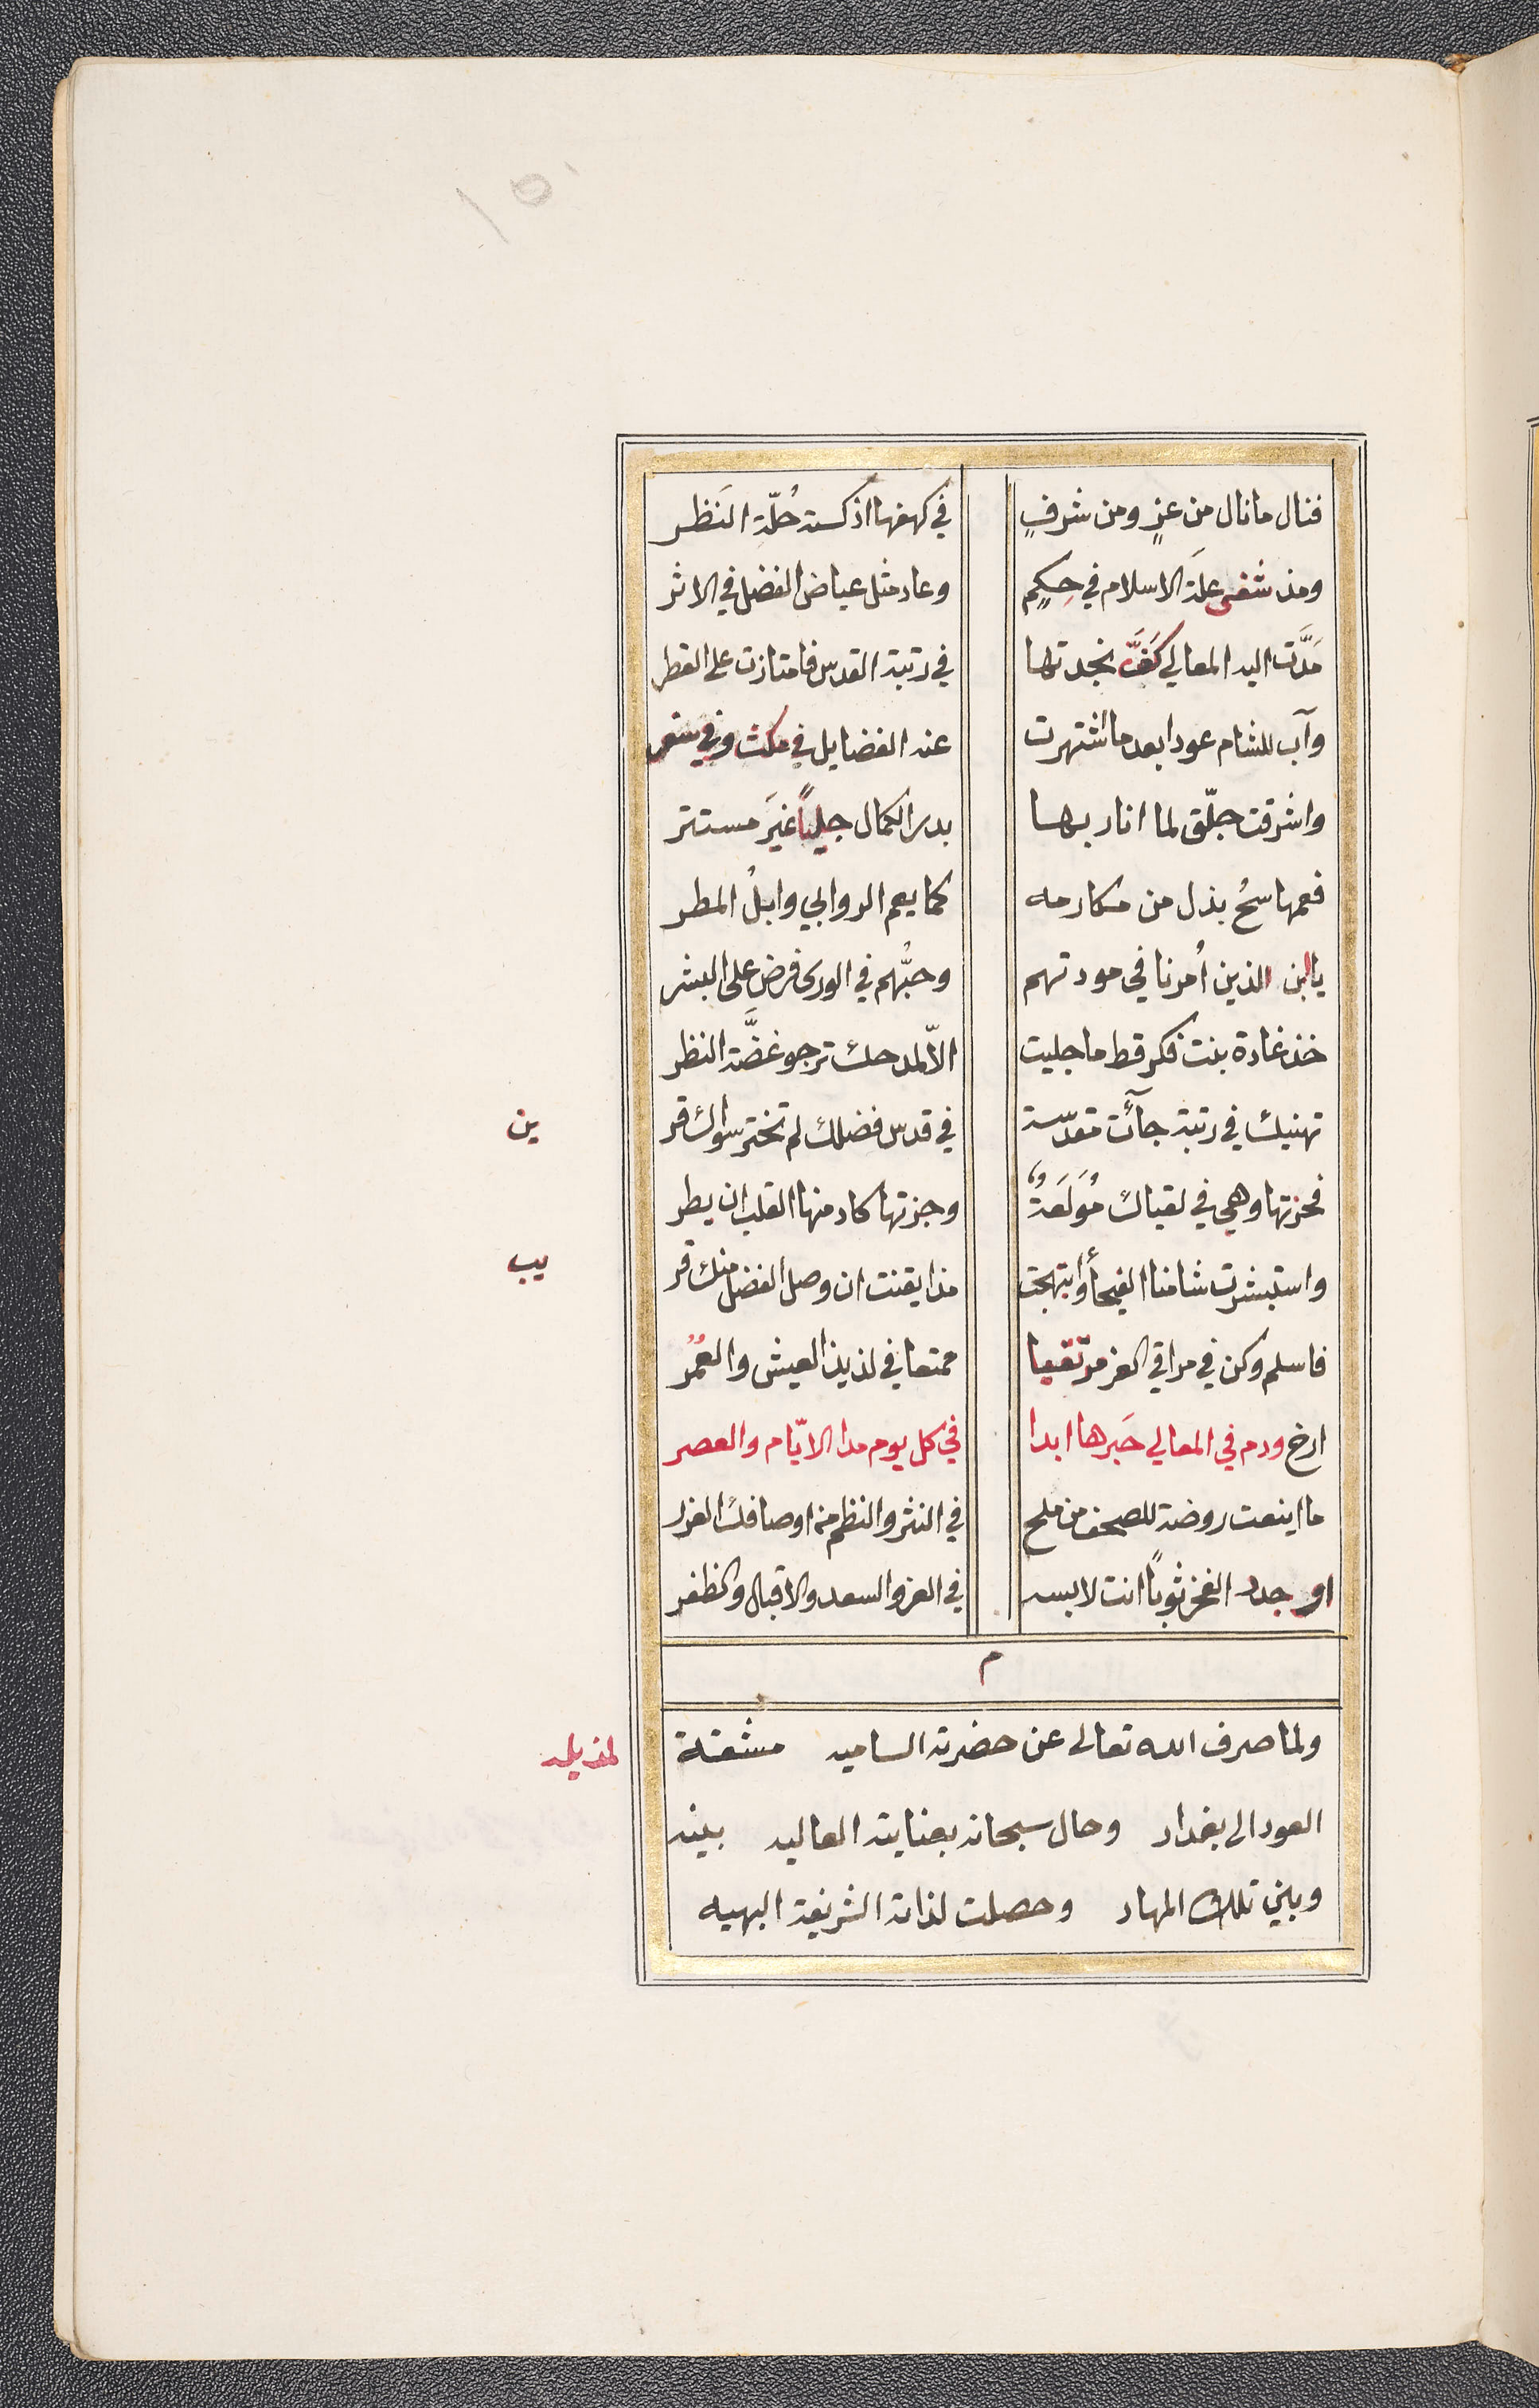 فنال ما نال من عزٍ ومن شرفٍ في كهفها اذ كسته حُلّة النَظر
ومذ شفى علة الاسلام في حِكَمٍ وعاد مثل عياض الفضل في الاثر
مَدَّت اليه المعالي كَفَّ نجدتها في رتبة القدس فامتازت على القطر
وآب للشام عودا بعد ما اشتهرت عنه الفضايل في مكث وفي سفر
واشرقت جلّق لما انار بها بدر الكمال جلياً غيرَ مستتر
فعمها سحُ بذل من مكارمه كما يعم الروابي وابلُ المطر
يا ابن الذين أُمرنا في مودتهم وحبُّهم في الورى فرض على البشر
خذ غادة بنت فكر قط ما جليت الاّ لمدحك ترجو غضَّة النظر
تهنيك في رتبة جآئت مقدّسة في قدس فضلك لم تختر سواك قر
ين
فحزتها وهي في لقياك مُولَعَةٌ وجزتها كاد منها القلب ان يطر
واستبشرت شامنا الفيحأ وابتهجت مذ ايقنت ان وصل الفضل منك قر
يب
فاسلم وكن في مراقي العز مرتقيا ممتعا في لذيذ العيش والعُمُر
ارخ ودم في المعالي حَبرها ابدا في كل يوم مدا الايّام والعصر
ما اينعت روضة للصحف من ملح في النثر والنظم من اوصافك الغرر
او جدد الفخر ثوباً انت لابسه في العز والسعد والاقبال والظفر
م
ولما صرف الله تعالى عن حضرته الساميه مشقة
لمذيله
العود الى بغداد وحال سبحانه بعنايته العاليه بينه
وبين تلك المهاد وحصلت لذاته الشريفة البهيه